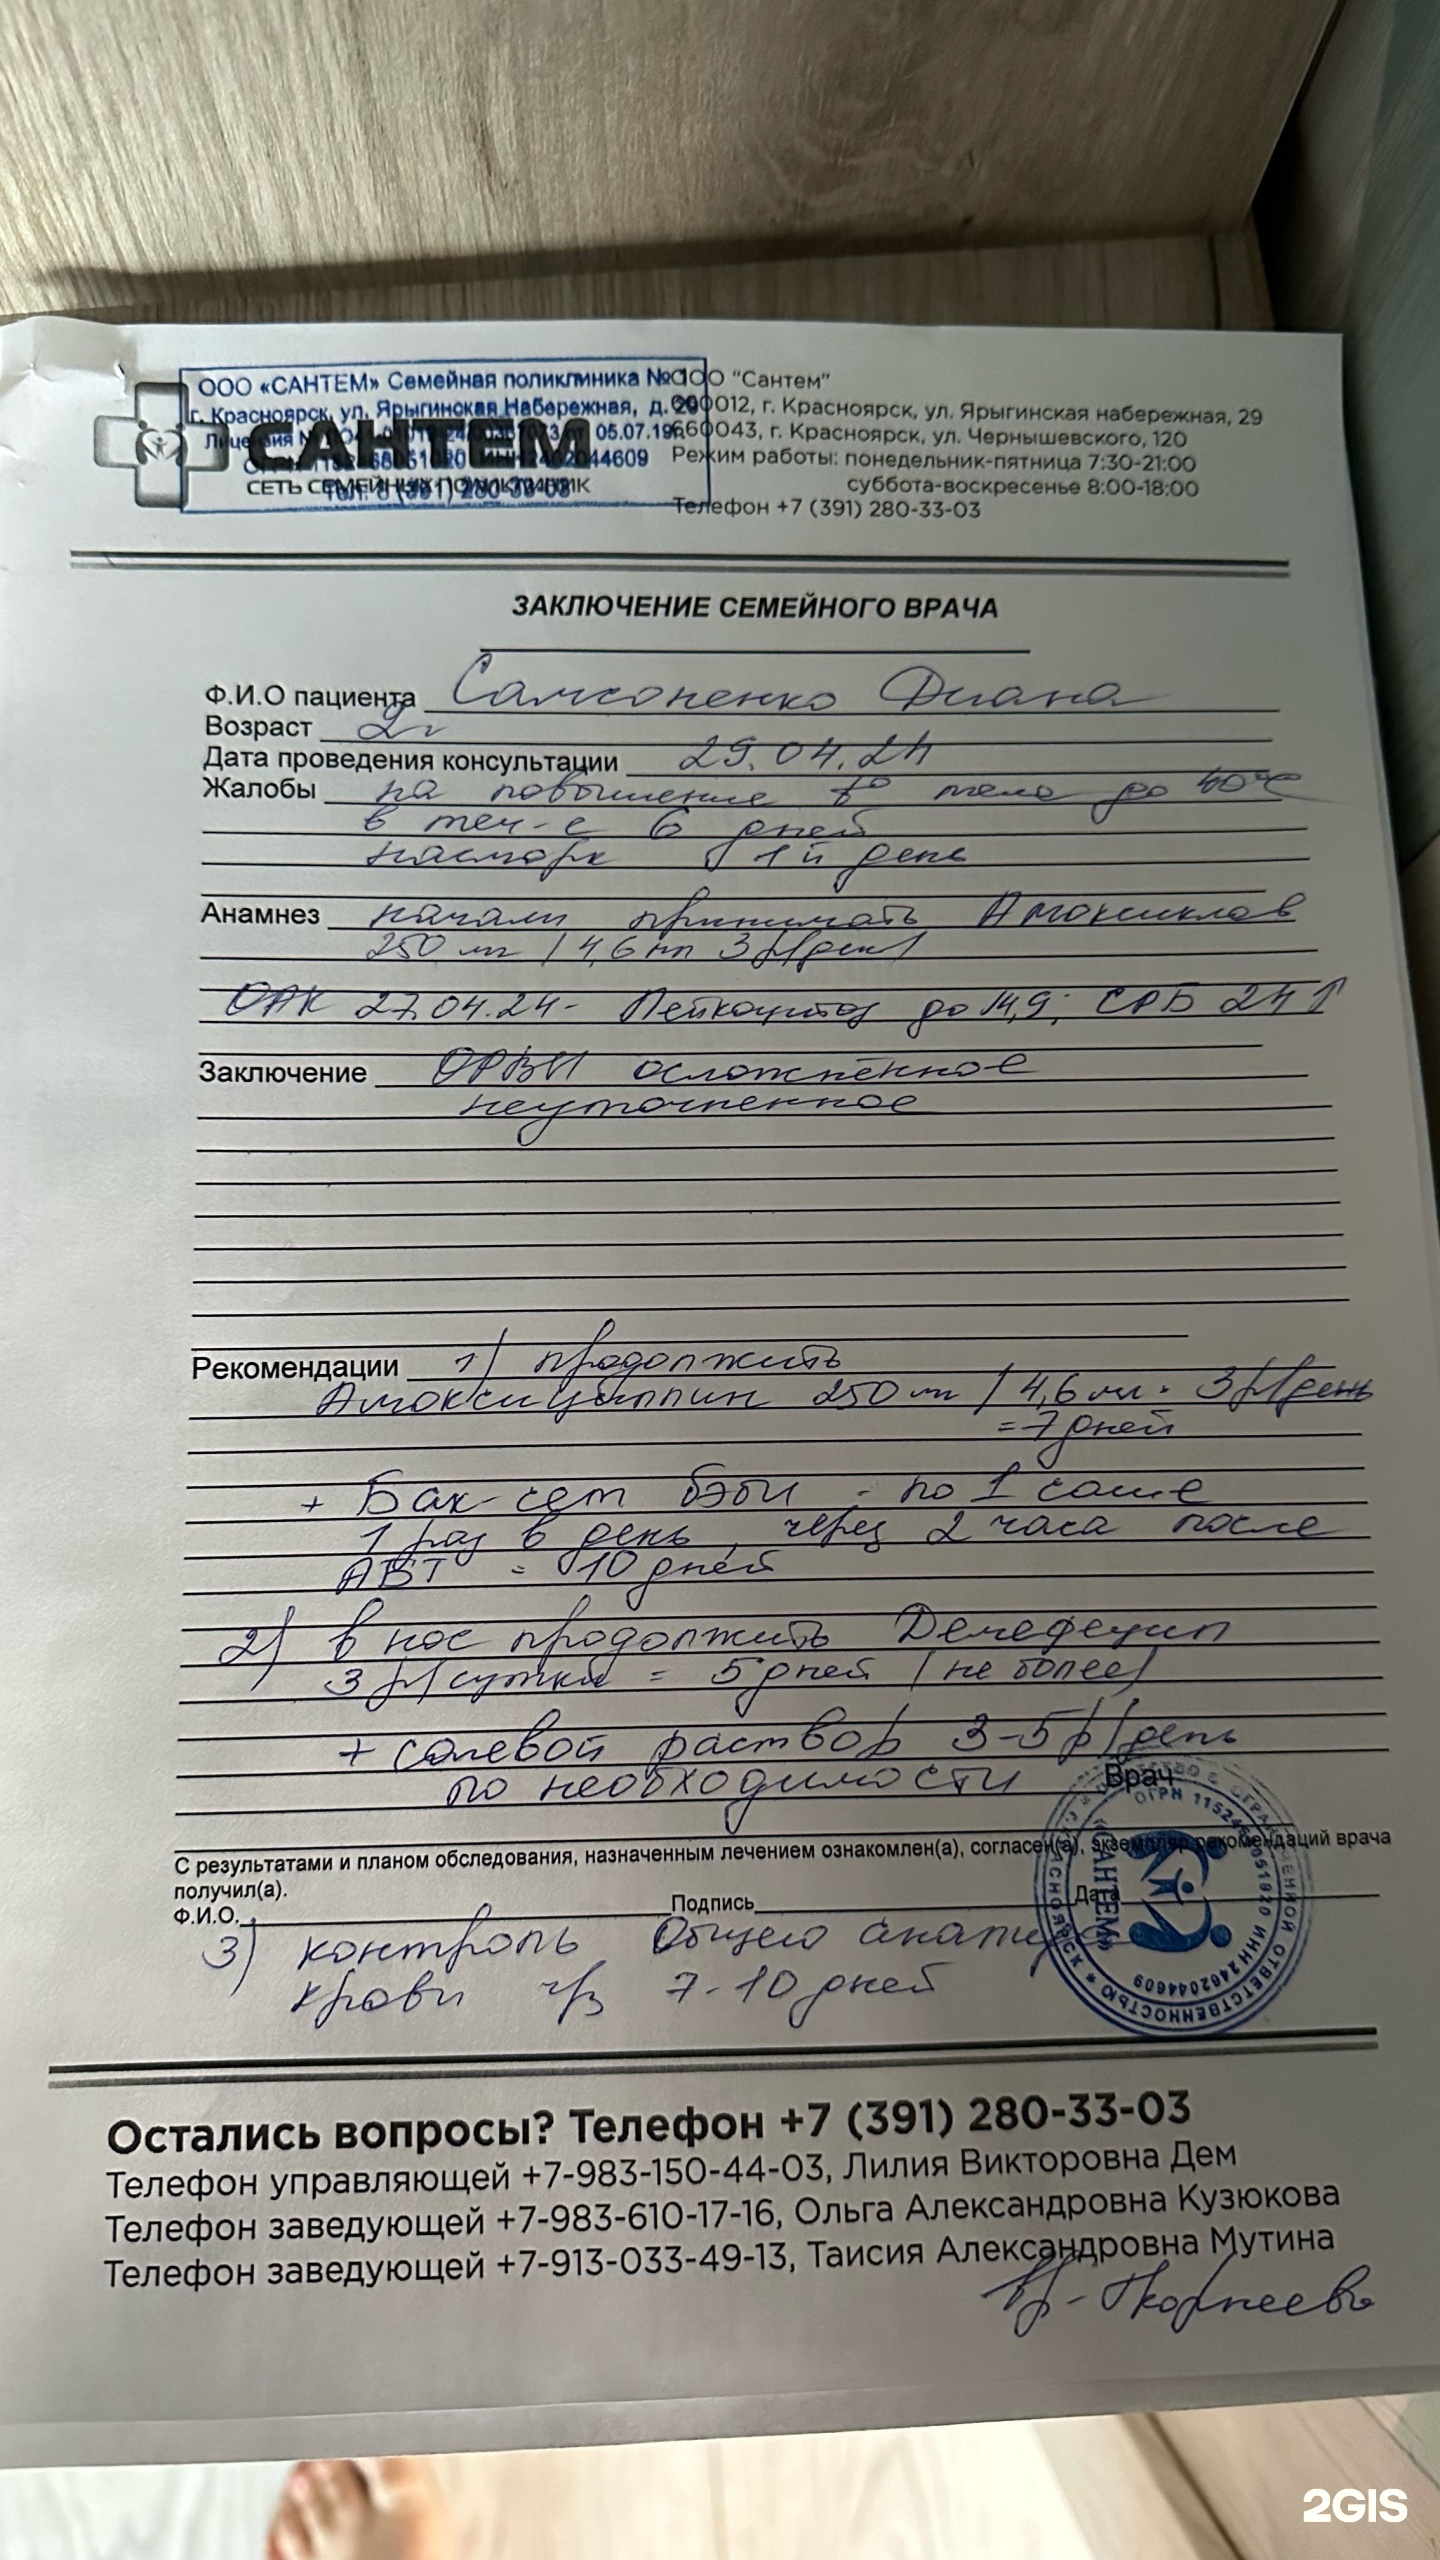 ООО «САНТЕМ» Семейная поликлиника №1
г. Красноярск, ул. Ярыгинская Набережная, д. 29
05.07.19г.
2462044609
САНТЕМ
СЕТЬ СЕМЕЙНЫХ ПОЛИКЛИНИК
тел. 8 (391) 280-33-03
ООО "Сантем"
660012, г. Красноярск, ул. Ярыгинская набережная, 29
660043, г. Красноярск, ул. Чернышевского, 120
Режим работы: понедельник-пятница 7:30-21:00
суббота-воскресенье 8:00-18:00
Телефон +7 (391) 280-33-03
ЗАКЛЮЧЕНИЕ СЕМЕЙНОГО ВРАЧА
Ф.И.О пациента Самсоненко Диана
Возраст 2г
Дата проведения консультации 29.04.24
Жалобы на повышение t° тела до 40°С
в теч-е 6 дней
насморк 1й день
Анамнез начали принимать Амоксиклав
250 мг / 4,6 мл 3р/день
ОАК 27.04.24 - Лейкоцитоз до 14,9; СРБ 24↑
Заключение ОРВИ осложнённое
неуточненное
Рекомендации 1) продолжить
Амоксициллин 250 мг / 4,6 мл · 3р/день
= 7 дней
+ Бак-сет бэби - по 1 саше
1 раз в день, через 2 часа после
АБТ = 10 дней
2) в нос продолжить
3 р/сутки = 5 дней (не более)
+ солевой раствор 3-5 р/день
по необходимости
Врач
С результатами и планом обследования, назначенным лечением ознакомлен(а), согласен(а), экземпляр рекомендаций врача
получил(а).
Ф.И.О. Подпись Дата
3) контроль Общего анализа
крови ч/з 7-10 дней
«САНТЕМ»
Остались вопросы? Телефон +7 (391) 280-33-03
Телефон управляющей +7-983-150-44-03, Лилия Викторовна Дем
Телефон заведующей +7-983-610-17-16, Ольга Александровна Кузюкова
Телефон заведующей +7-913-033-49-13, Таисия Александровна Мутина
2GIS